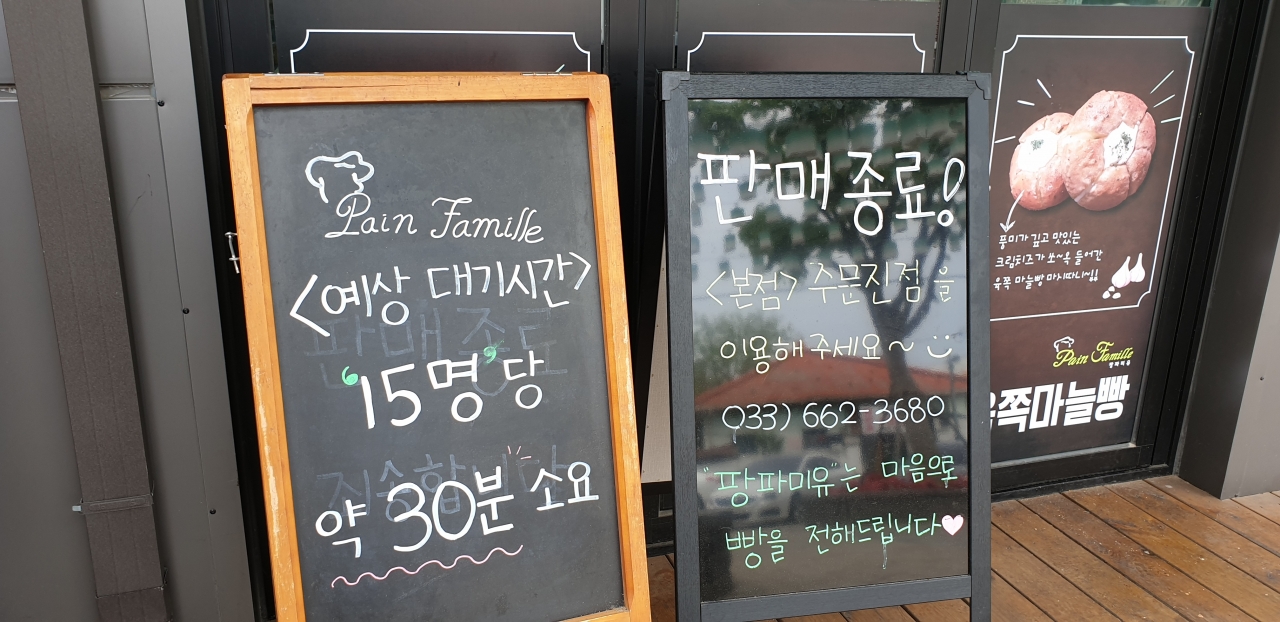 Pain Famille
<예상 대기시간>
'15명'당
약 30분 소요
판매종료!
<본점> 주문진점을
이용해주세요~
033) 662-3680
"팡파미유"는 마음으로
빵을 전해드립니다
풍미가 깊고 맛있는
크림치즈가 쏘~옥 들어간
육쪽 마늘빵 마시따니~!!
Pain Famille
팡파미유
쪽마늘빵